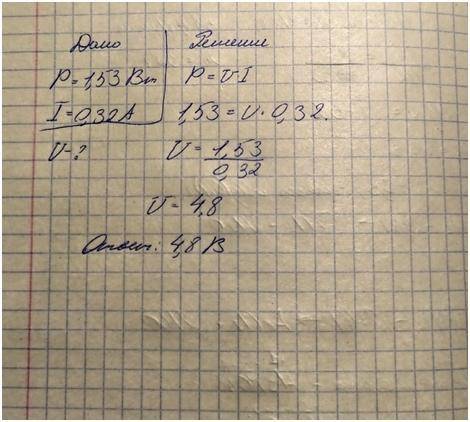 Дано Решение
P=1,53 Вт P=U·I
I=0,32А 1,53=U·0,32.
U-? U=1,53/0,32
U=4,8
Ответ: 4,8 В